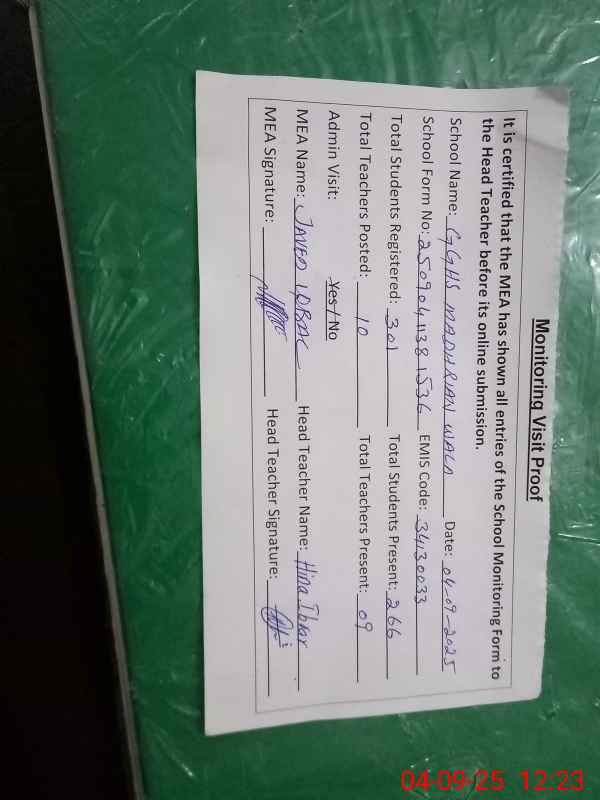 Monitoring Visit Proof
It is certified that the MEA has shown all entries of the School Monitoring Form to
the Head Teacher before its online submission.
School Name: GGHS MADHRIAN WALA Date: 04-09-2025
School Form No: 2509041138 1536 EMIS Code: 34130033
Total Students Registered: 301 Total Students Present: 266
Total Teachers Posted: 10 Total Teachers Present: 09
Admin Visit: Yes / No
MEA Name: JAVED IQBAL Head Teacher Name: Hina Ibrar
MEA Signature: Head Teacher Signature:
04-09-25 12:23